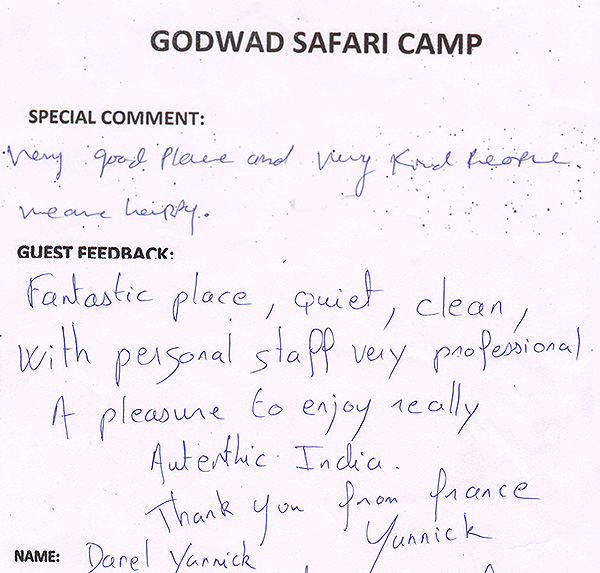 GODWAD SAFARI CAMP
SPECIAL COMMENT:
very good Place and very Kind People
we are happy.
GUEST FEEDBACK:
Fantastic place, quiet, clean,
with personal staff very professional
A pleasure to enjoy really
Autenthic India.
Thank you from france
Yannick
NAME: Danel Yannick